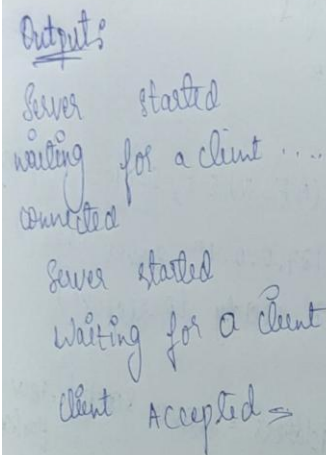 Output:
Server started
waiting for a client ....
connected
Server started
Waiting for a client
client Accepted